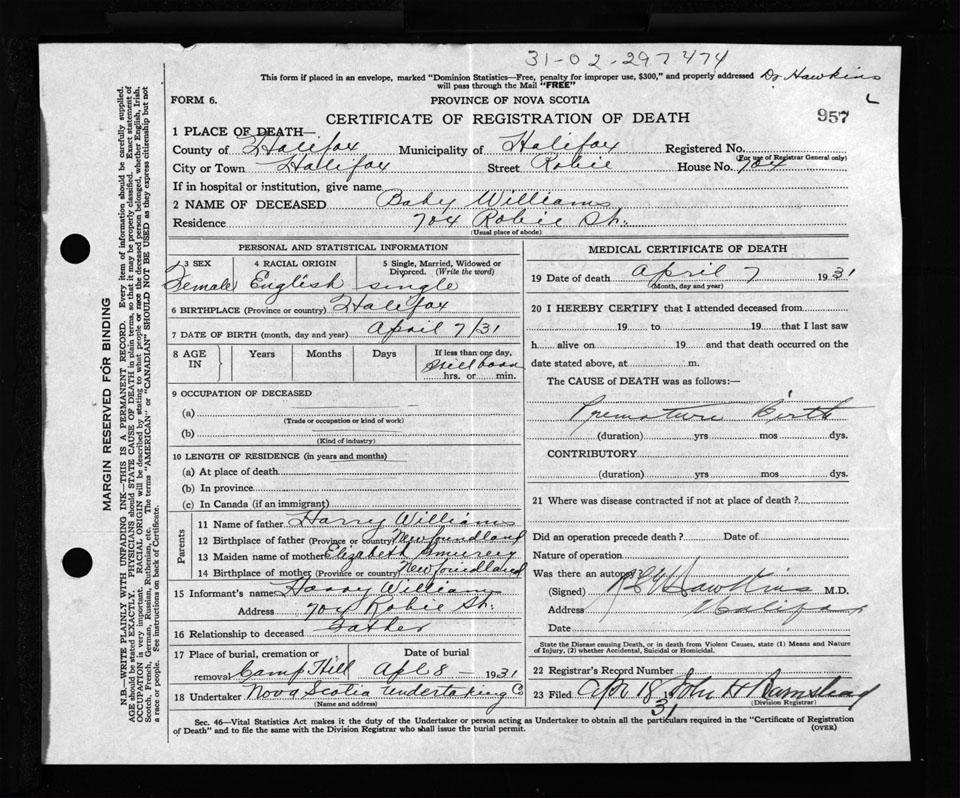 31-02-297474
This form if placed in an envelope, marked "Dominion Statistics—Free, penalty for improper use, $300," and properly addressed Dr Hawkins
will pass through the Mail "FREE"
FORM 6.
PROVINCE OF NOVA SCOTIA
957
CERTIFICATE OF REGISTRATION OF DEATH
1 PLACE OF DEATH—
County of Halifax Municipality of Halifax Registered No.
(For use of Registrar General only)
City or Town Halifax Street Robie House No. 704
If in hospital or institution, give name
2 NAME OF DECEASED Baby Williams
Residence 704 Robie St.
(Usual place of abode)
PERSONAL AND STATISTICAL INFORMATION
3 SEX 4 RACIAL ORIGIN 5 Single, Married, Widowed or
Divorced. (Write the word)
Female English single
6 BIRTHPLACE (Province or country) Halifax
7 DATE OF BIRTH (month, day and year) April 7/31
8 AGE IN Years Months Days If less than one day,
Stillborn
hrs. or min.
9 OCCUPATION OF DECEASED
(a)
(Trade or occupation or kind of work)
(b)
(Kind of industry)
10 LENGTH OF RESIDENCE (in years and months)
(a) At place of death
(b) In province
(c) In Canada (if an immigrant)
Parents
11 Name of father Harry Williams
12 Birthplace of father (Province or country) Newfoundland
13 Maiden name of mother Elizabeth
14 Birthplace of mother (Province or country) Newfoundland
15 Informant's name Harry William
Address 704 Robie St.
16 Relationship to deceased Father
17 Place of burial, cremation or Date of burial
removal Camp Hill Apl 8 — 1931
18 Undertaker Nova Scotia Undertaking Co
(Name and address)
MEDICAL CERTIFICATE OF DEATH
19 Date of death April 7 1931
(Month, day and year)
20 I HEREBY CERTIFY that I attended deceased from
19 to 19 that I last saw
h alive on 19 and that death occurred on the
date stated above, at m.
The CAUSE of DEATH was as follows:—
Premature Birth
(duration) yrs mos dys.
CONTRIBUTORY
(duration) yrs mos dys.
21 Where was disease contracted if not at place of death ?
Did an operation precede death ? Date of
Nature of operation
Was there an autopsy
(Signed) Hawkins M.D.
Address Halifax
Date
State the Disease causing Death, or in death from Violent Causes, state (1) Means and Nature
of Injury, (2) whether Accidental, Suicidal or Homicidal.
22 Registrar's Record Number
23 Filed Apr 18 31 John H
(Division Registrar)
Sec. 46—Vital Statistics Act makes it the duty of the Undertaker or person acting as Undertaker to obtain all the particulars required in the "Certificate of Registration
of Death" and to file the same with the Division Registrar who shall issue the burial permit.
(OVER)
MARGIN RESERVED FOR BINDING
N.B.—WRITE PLAINLY WITH UNFADING INK—THIS IS A PERMANENT RECORD. Every item of information should be carefully supplied.
AGE should be stated EXACTLY. PHYSICIANS should STATE CAUSE OF DEATH in plain terms, so that it may be properly classified. Exact statement of
OCCUPATION is very important. RACIAL ORIGIN will be described by stating to what people or race the deceased person belonged, whether English, Irish,
Scotch, French, German, Russian, Ruthenian, etc. The terms "AMERICAN" or "CANADIAN" SHOULD NOT BE USED as they express citizenship but not
a race or people. See instructions on back of Certificate.